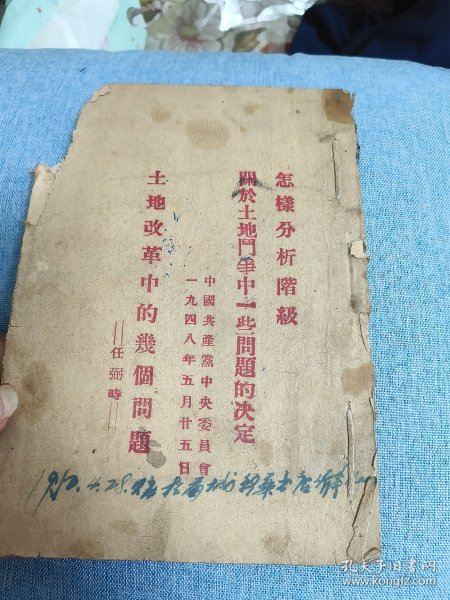 怎樣分析階級
關於土地鬥爭中一些問題的決定
中國共產黨中央委員會
一九四八年五月廿五日
土地改革中的幾個問題
——任弼時——
4.28.
孔夫子旧书网
kongfz.com